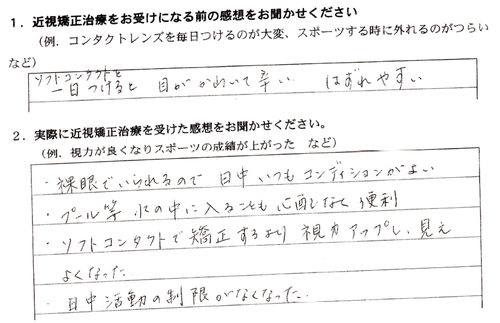 １．近視矯正治療をお受けになる前の感想をお聞かせください
（例．コンタクトレンズを毎日つけるのが大変、スポーツする時に外れるのがつらい
など）
ソフトコンタクトを
一日つけると 目がかわいて辛い はずれやすい
２．実際に近視矯正治療を受けた感想をお聞かせください。
（例．視力が良くなりスポーツの成績が上がった など）
・裸眼でいられるので 日中いつもコンディションがよい
・プール等 水の中に入ることも心配なく便利
・ソフトコンタクトで矯正するより 視力アップし、見え
よくなった.
・日中活動の制限がなくなった.